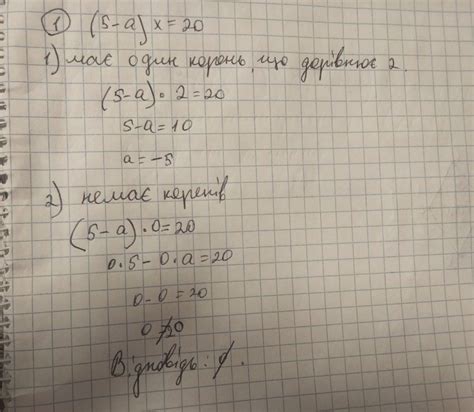 ① (5-a)x=20
1) має один корень, що дорівнює 2.
(5-a)•2=20
5-a=10
a=-5
2) немає коренів
(5-a)•0=20
0•5-0•a=20
0-0=20
0≠20
Відповідь: ∅.